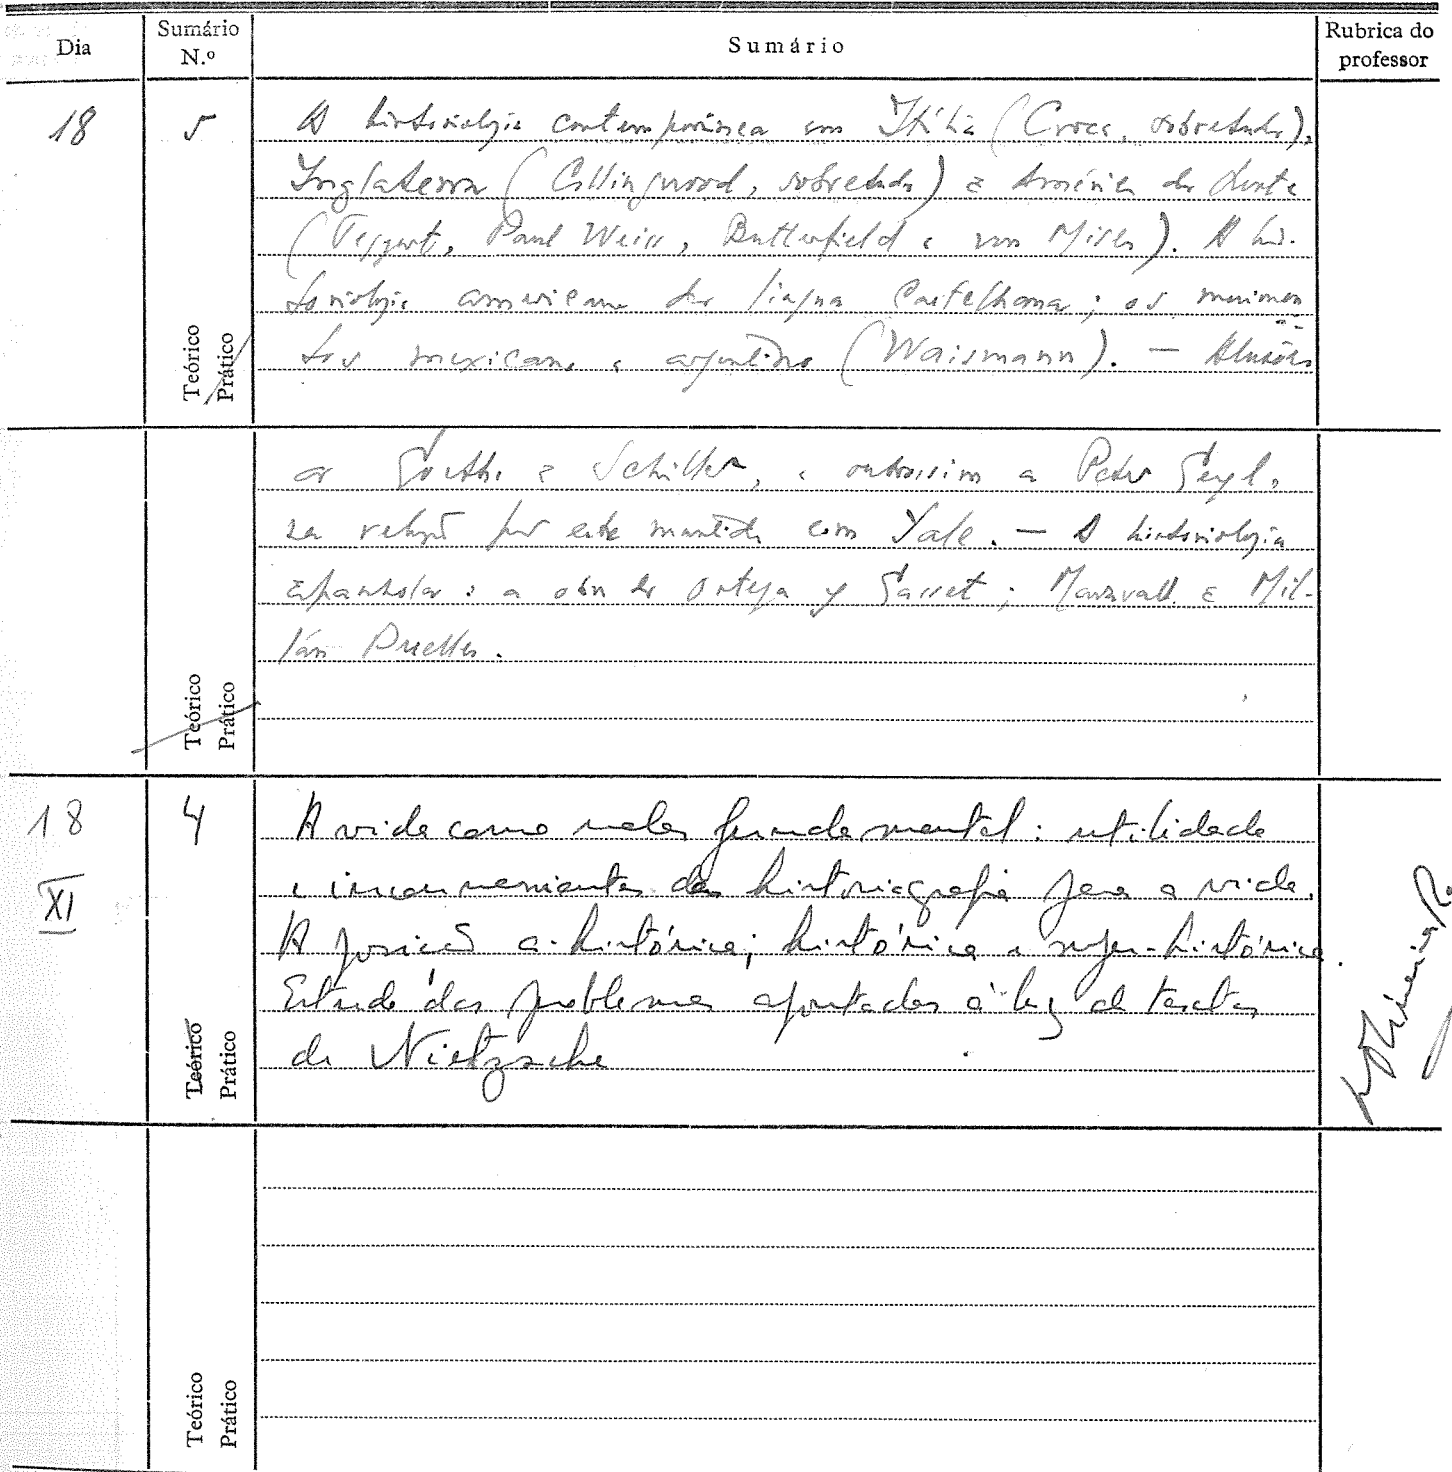 Dia Sumário N.º Sumário Rubrica do professor
18 5 A historiologia contemporânea em Itália (Croce, sobretudo),
Inglaterra (Collingwood, sobretudo) e América do Norte
(Teggart, Paul Weiss, Butterfield e von Mises). A his-
toriologia americana de língua castelhana; os movimen
tos mexicano e argentino (Waismann). — Alusões
Teórico
Prático
a Goethe e Schiller, e outrossim a Peter Geyl,
na relação por este mantida com Yale. — A historiologia
espanhola: a obra de Ortega y Gasset; Maravall e Mil-
lán Puelles.
Teórico
Prático
18 XI 4 A vida como valor fundamental: utilidade
e inconvenientes da historiografia para a vida.
A posição a-histórica; histórica e super-histórica.
Estudo dos problemas apontados à luz de textos
de Nietzsche
Teórico
Prático
Teórico
Prático